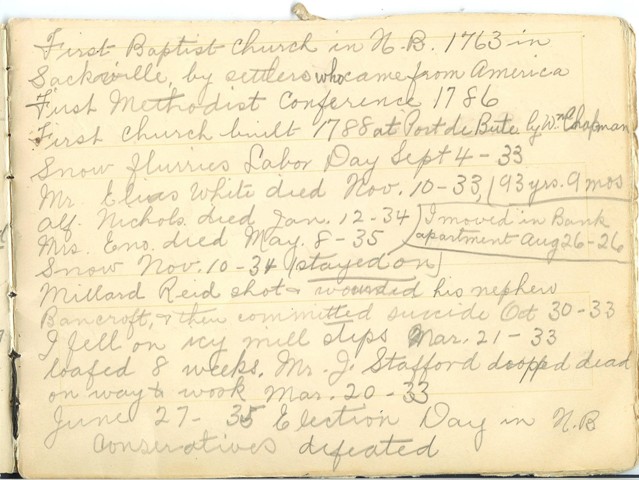 First Baptist Church in N.B. 1763 in
Sackville, by settlers who came from America
First Methodist Conference 1786
First Church built 1788 at Port de Bute by Wm Chapman
Snow flurries Labor Day Sept 4 - 33
Mr. Elias White died Nov. 10 - 33 (93 yrs. 9 mos
Alf. Nichols died Jan. 12 - 34 (I moved in Bank
Mrs. Eno. died May. 8 - 35 apartment Aug 26 - 26
Snow Nov. 10 - 34 (stayed on)
Millard Reid shot & wounded his nephew
Bancroft, & then committed suicide Oct 30 - 33
I fell on icy mill steps Mar. 21 - 33
loafed 8 weeks. Mr. J. Stafford dropped dead
on way to work Mar. 20 - 33
June 27 - 35 Election Day in N.B
Conservatives defeated